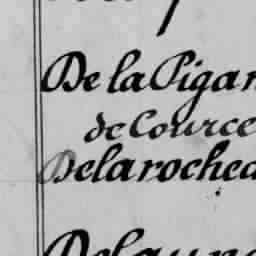 De la Pigan
de Cource
Delaroched
Delaun